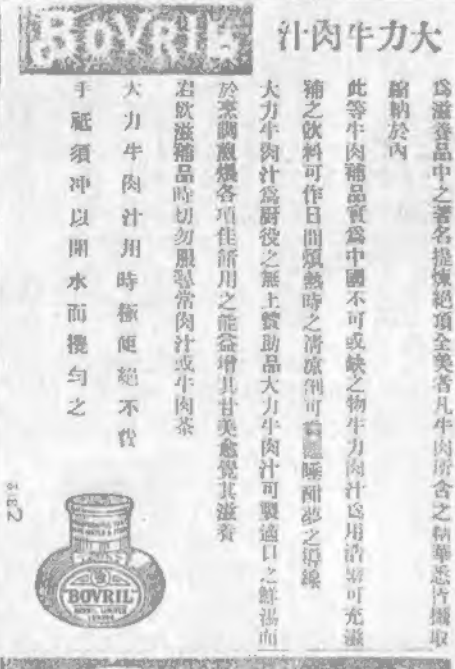 大力牛肉汁
BOVRIL
爲滋養品中之著名提煉絕頂全美者凡牛肉所含之精華悉皆攝取
納於內
此等牛肉補品實爲中國不可或缺之物牛力肉汁爲用浩可充滋
補之飲料可作日間煩熱時之清凉劑可睡酣夢之導線
大力牛肉汁爲厨役之無上贊助品大力牛肉汁可製適口之鮮湯而
於烹調煎各項佳餚用之能益增其甘美愈覺其滋養
君飲滋補品時切勿服尋常肉汁或牛肉茶
大力牛肉汁用時極便絕不費
手祗須冲以開水而攪勻之
BOVRIL
LIMITED